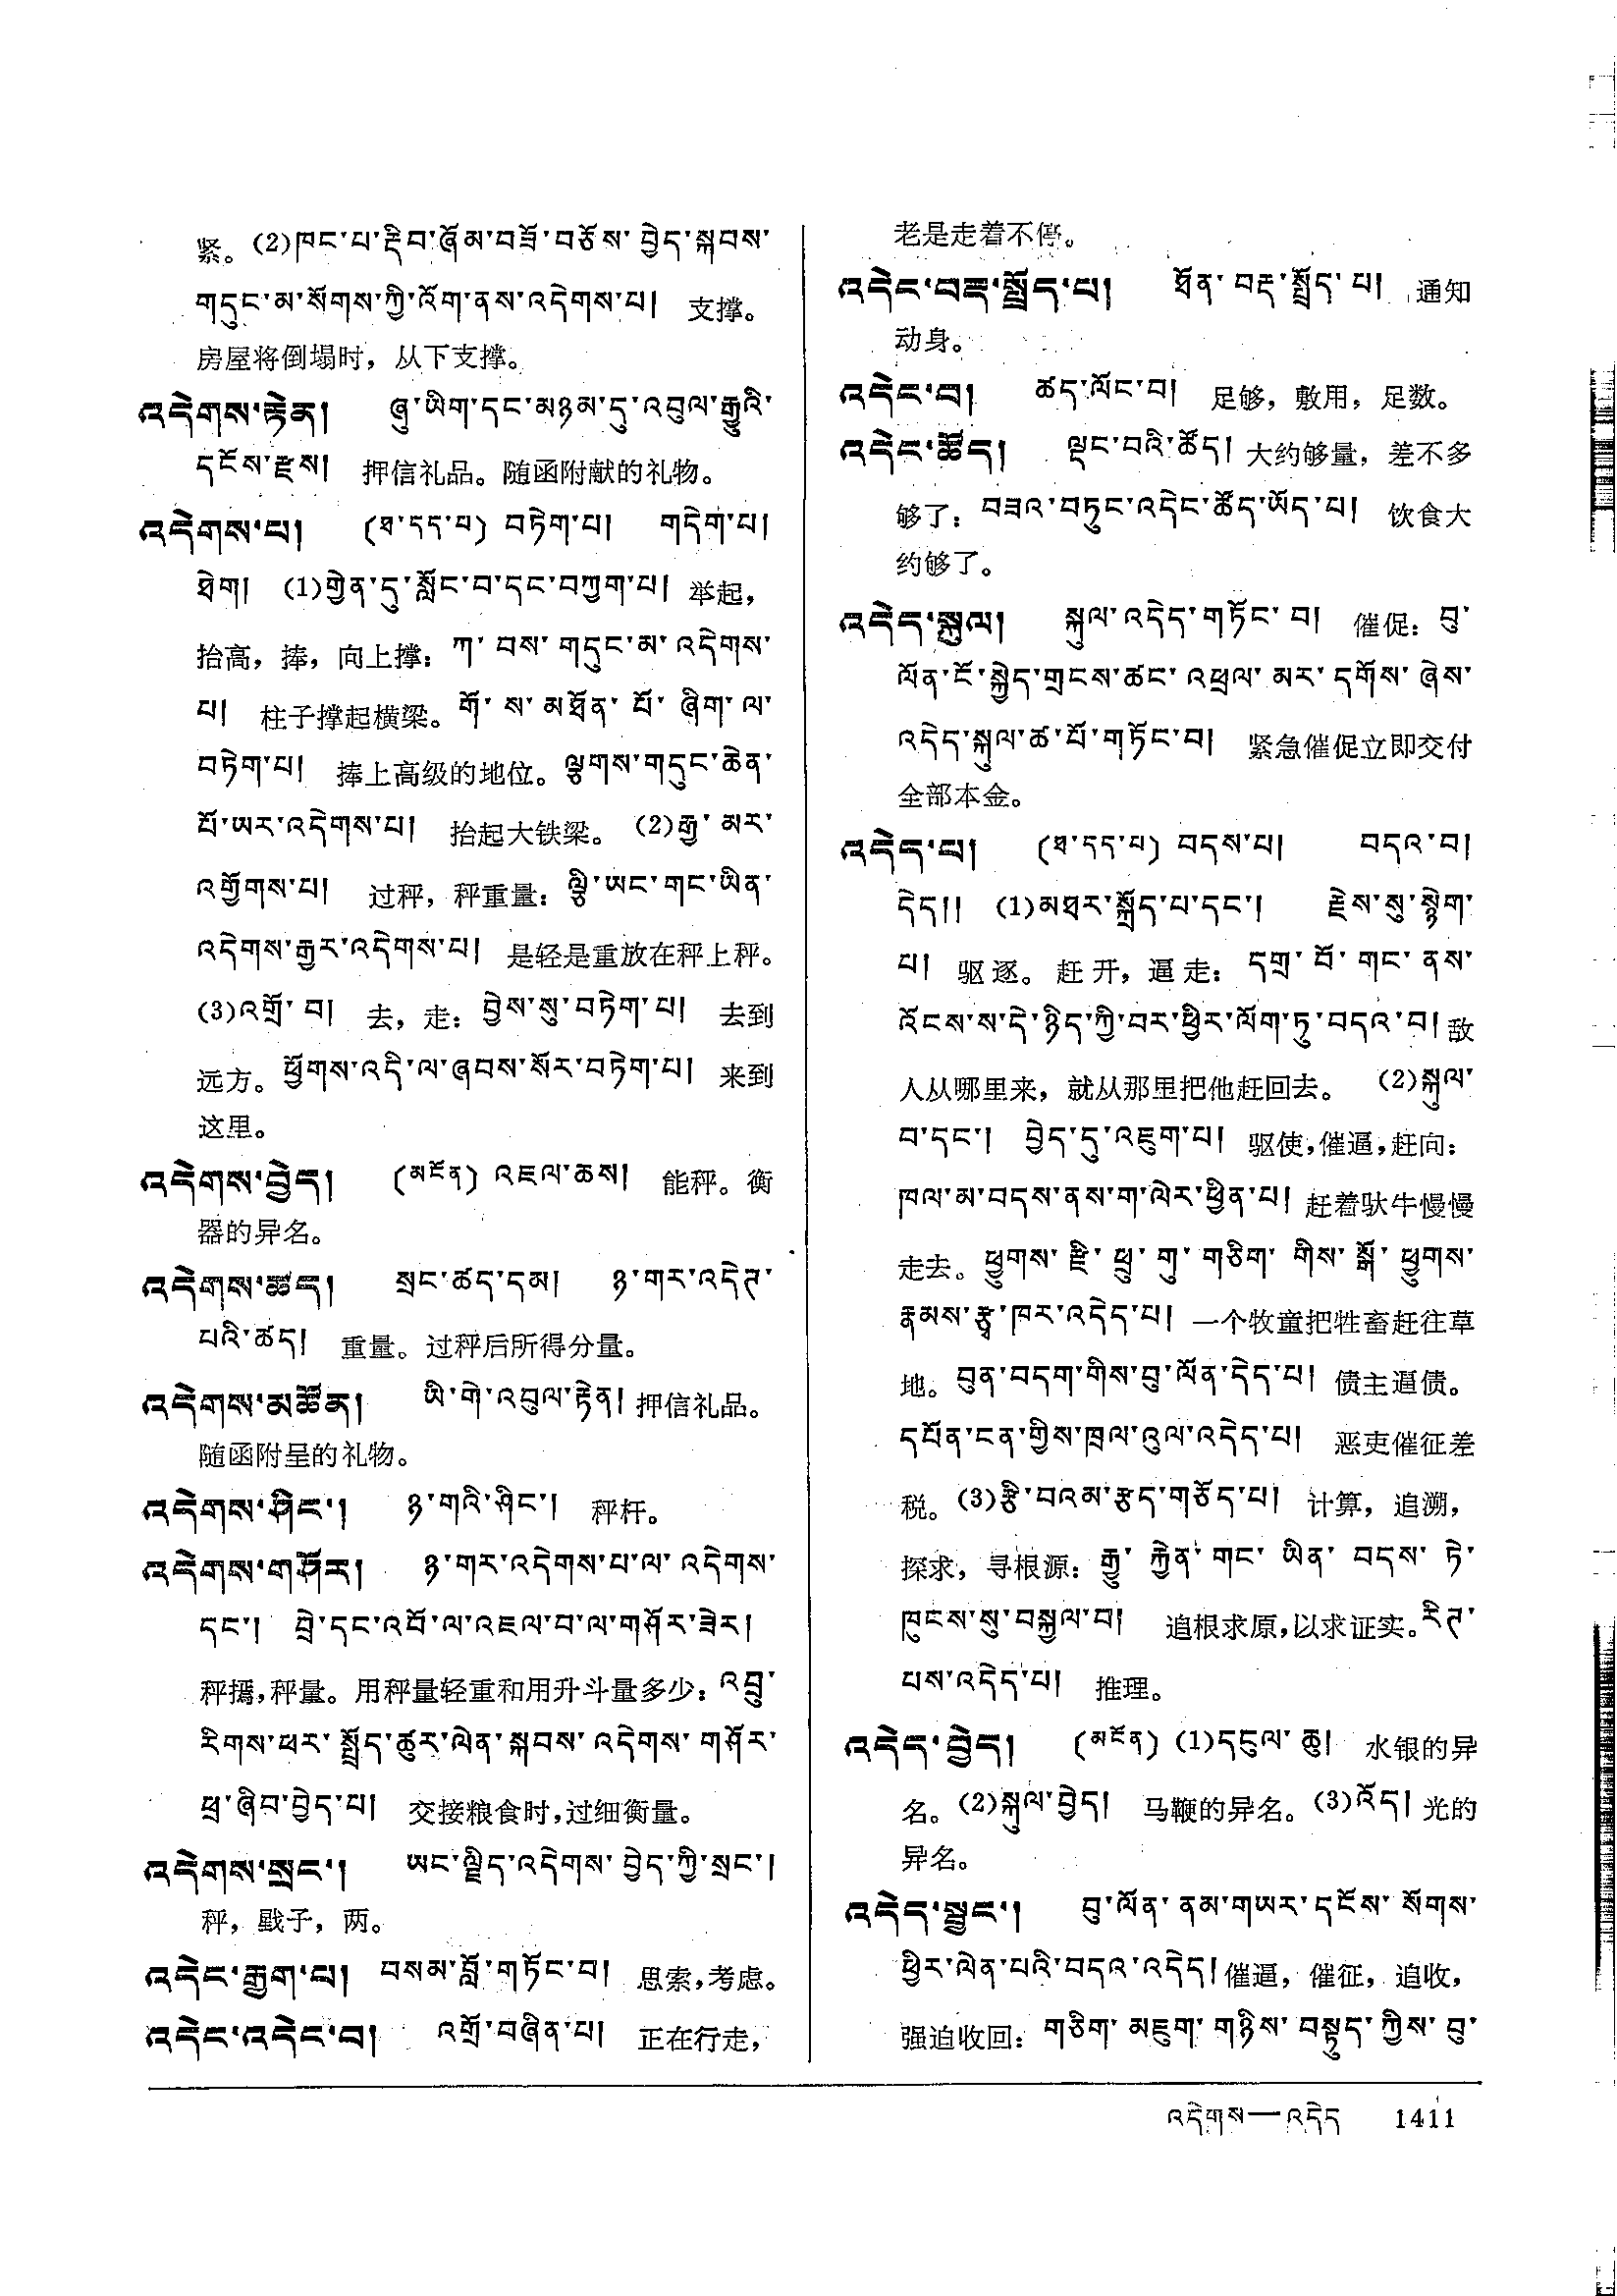 紧。(2)ཁང་པ་རྡིབ་ཞོམ་བཟོ་བཅོས་བྱེད་སྐབས་
གདུང་མ་སོགས་ཀྱི་འོག་ནས་འདེགས་པ། 支撑。
房屋将倒塌时，从下支撑。
འདེགས་རྟེན། ཞུ་ཡིག་དང་མཉམ་དུ་འབུལ་རྒྱུའི་
དངོས་རྫས། 押信礼品。随函附献的礼物。
འདེགས་པ། (ཐ་དད་པ) བཏེག་པ། གདེག་པ།
ཐེག། (1)གྱེན་དུ་སློང་བ་དང་བཀྱག་པ། 举起，
抬高，捧，向上撑：ཀ་བས་གདུང་མ་འདེགས་
པ། 柱子撑起横梁。གོ་ས་མཐོན་པོ་ཞིག་ལ་
བཏེག་པ། 捧上高级的地位。ལྕགས་གདུང་ཆེན་
པོ་ཡར་འདེགས་པ། 抬起大铁梁。(2)རྒྱ་མར་
འགྱོགས་པ། 过秤，秤重量：ལྕི་ཡང་གང་ཡིན་
འདེགས་རྒྱར་འདེགས་པ། 是轻是重放在秤上秤。
(3)འགྲོ་བ། 去，走：བྱེས་སུ་བཏེག་པ། 去到
远方。ཕྱོགས་འདི་ལ་ཞབས་སོར་བཏེག་པ། 来到
这里。
འདེགས་བྱེད། (མངོན) འཇལ་ཆས། 能秤。衡
器的异名。
འདེགས་ཚད། སྲང་ཚད་དམ། ཉ་གར་འདེཊ་
པའི་ཚད། 重量。过秤后所得分量。
འདེགས་མཚོན། ཡི་གེ་འབུལ་རྟེན། 押信礼品。
随函附呈的礼物。
འདེགས་ཤིང་། ཉ་གའི་ཤིང་། 秤杆。
འདེགས་གཤོར། ཉ་གར་འདེགས་པ་ལ་འདེགས་
དང་། བྲེ་དང་འབོ་ལ་འཇལ་བ་ལ་གཤོར་ཟེར།
秤㨫，秤量。用秤量轻重和用升斗量多少：འབྲུ་
རིགས་ཕར་སྤྲོད་ཚུར་ལེན་སྐབས་འདེགས་གཤོར་
ཕྲ་ཞིབ་བྱེད་པ། 交接粮食时，过细衡量。
འདེགས་སྲང་། ཡང་ལྗིད་འདེགས་བྱེད་ཀྱི་སྲང་།
秤，戥子，两。
འདེང་རྒྱག་པ། བསམ་བློ་གཏོང་བ། 思索，考虑。
འདེང་འདེང་བ། འགྲོ་བཞིན་པ། 正在行走，
老是走着不停。
འདེང་བརྡ་སྤྲོད་པ། ཐོན་བརྡ་སྤྲོད་པ། 通知
动身。
འདེང་བ། ཚད་ལོང་བ། 足够，敷用，足数。
འདེང་ཚོད། ལྡང་བའི་ཚོད། 大约够量，差不多
够了：བཟའ་བཏུང་འདེང་ཚོད་ཡོད་པ། 饮食大
约够了。
འདེད་སྐུལ། སྐུལ་འདེད་གཏོང་བ། 催促：བུ་
ལོན་ངོ་སྐྱེད་གྲངས་ཚང་འཕྲལ་མར་དགོས་ཞེས་
འདེད་སྐུལ་ཚ་པོ་གཏོང་བ། 紧急催促立即交付
全部本金。
འདེད་པ། (ཐ་དད་པ) བདས་པ། བདའ་བ།
དེད།། (1)མཐར་སྐྲོད་པ་དང་། རྗེས་སུ་སྙེག་
པ། 驱逐。赶开，逼走：དགྲ་བོ་གང་ནས་
འོངས་ས་དེ་ཉིད་ཀྱི་བར་ཕྱིར་ལོག་ཏུ་བདའ་བ། 敌
人从哪里来，就从那里把他赶回去。 (2)སྐུལ་
བ་དང་། བྱེད་དུ་འཇུག་པ། 驱使，催逼，赶向：
ཁལ་མ་བདས་ནས་ག་ལེར་ཕྱིན་པ། 赶着驮牛慢慢
走去。ཕྱུགས་རྫི་ཕྲུ་གུ་གཅིག་གིས་སྒོ་ཕྱུགས་
རྣམས་རྩྭ་ཁར་འདེད་པ། 一个牧童把牲畜赶往草
地。བུན་བདག་གིས་བུ་ལོན་དེད་པ། 债主逼债。
དཔོན་ངན་གྱིས་ཁྲལ་འུལ་འདེད་པ། 恶吏催征差
税。(3)རྩི་བའམ་རྩད་གཅོད་པ། 计算，追溯，
探求，寻根源：རྒྱུ་རྐྱེན་གང་ཡིན་བདས་ཏེ་
ཁུངས་སུ་བསྐྱལ་བ། 追根求原，以求证实。རིཊ་
པས་འདེད་པ། 推理。
འདེད་བྱེད། (མངོན) (1)དངུལ་ཆུ། 水银的异
名。(2)སྐུལ་བྱེད། 马鞭的异名。(3)འོད། 光的
异名。
འདེད་སྦྱང་། བུ་ལོན་ནམ་གཡར་དངོས་སོགས་
ཕྱིར་ལེན་པའི་བདའ་འདེད། 催逼，催征，追收，
强迫收回：གཅིག་མཇུག་གཉིས་བསྟུད་ཀྱིས་བུ་
འདེགས—འདེད 1411